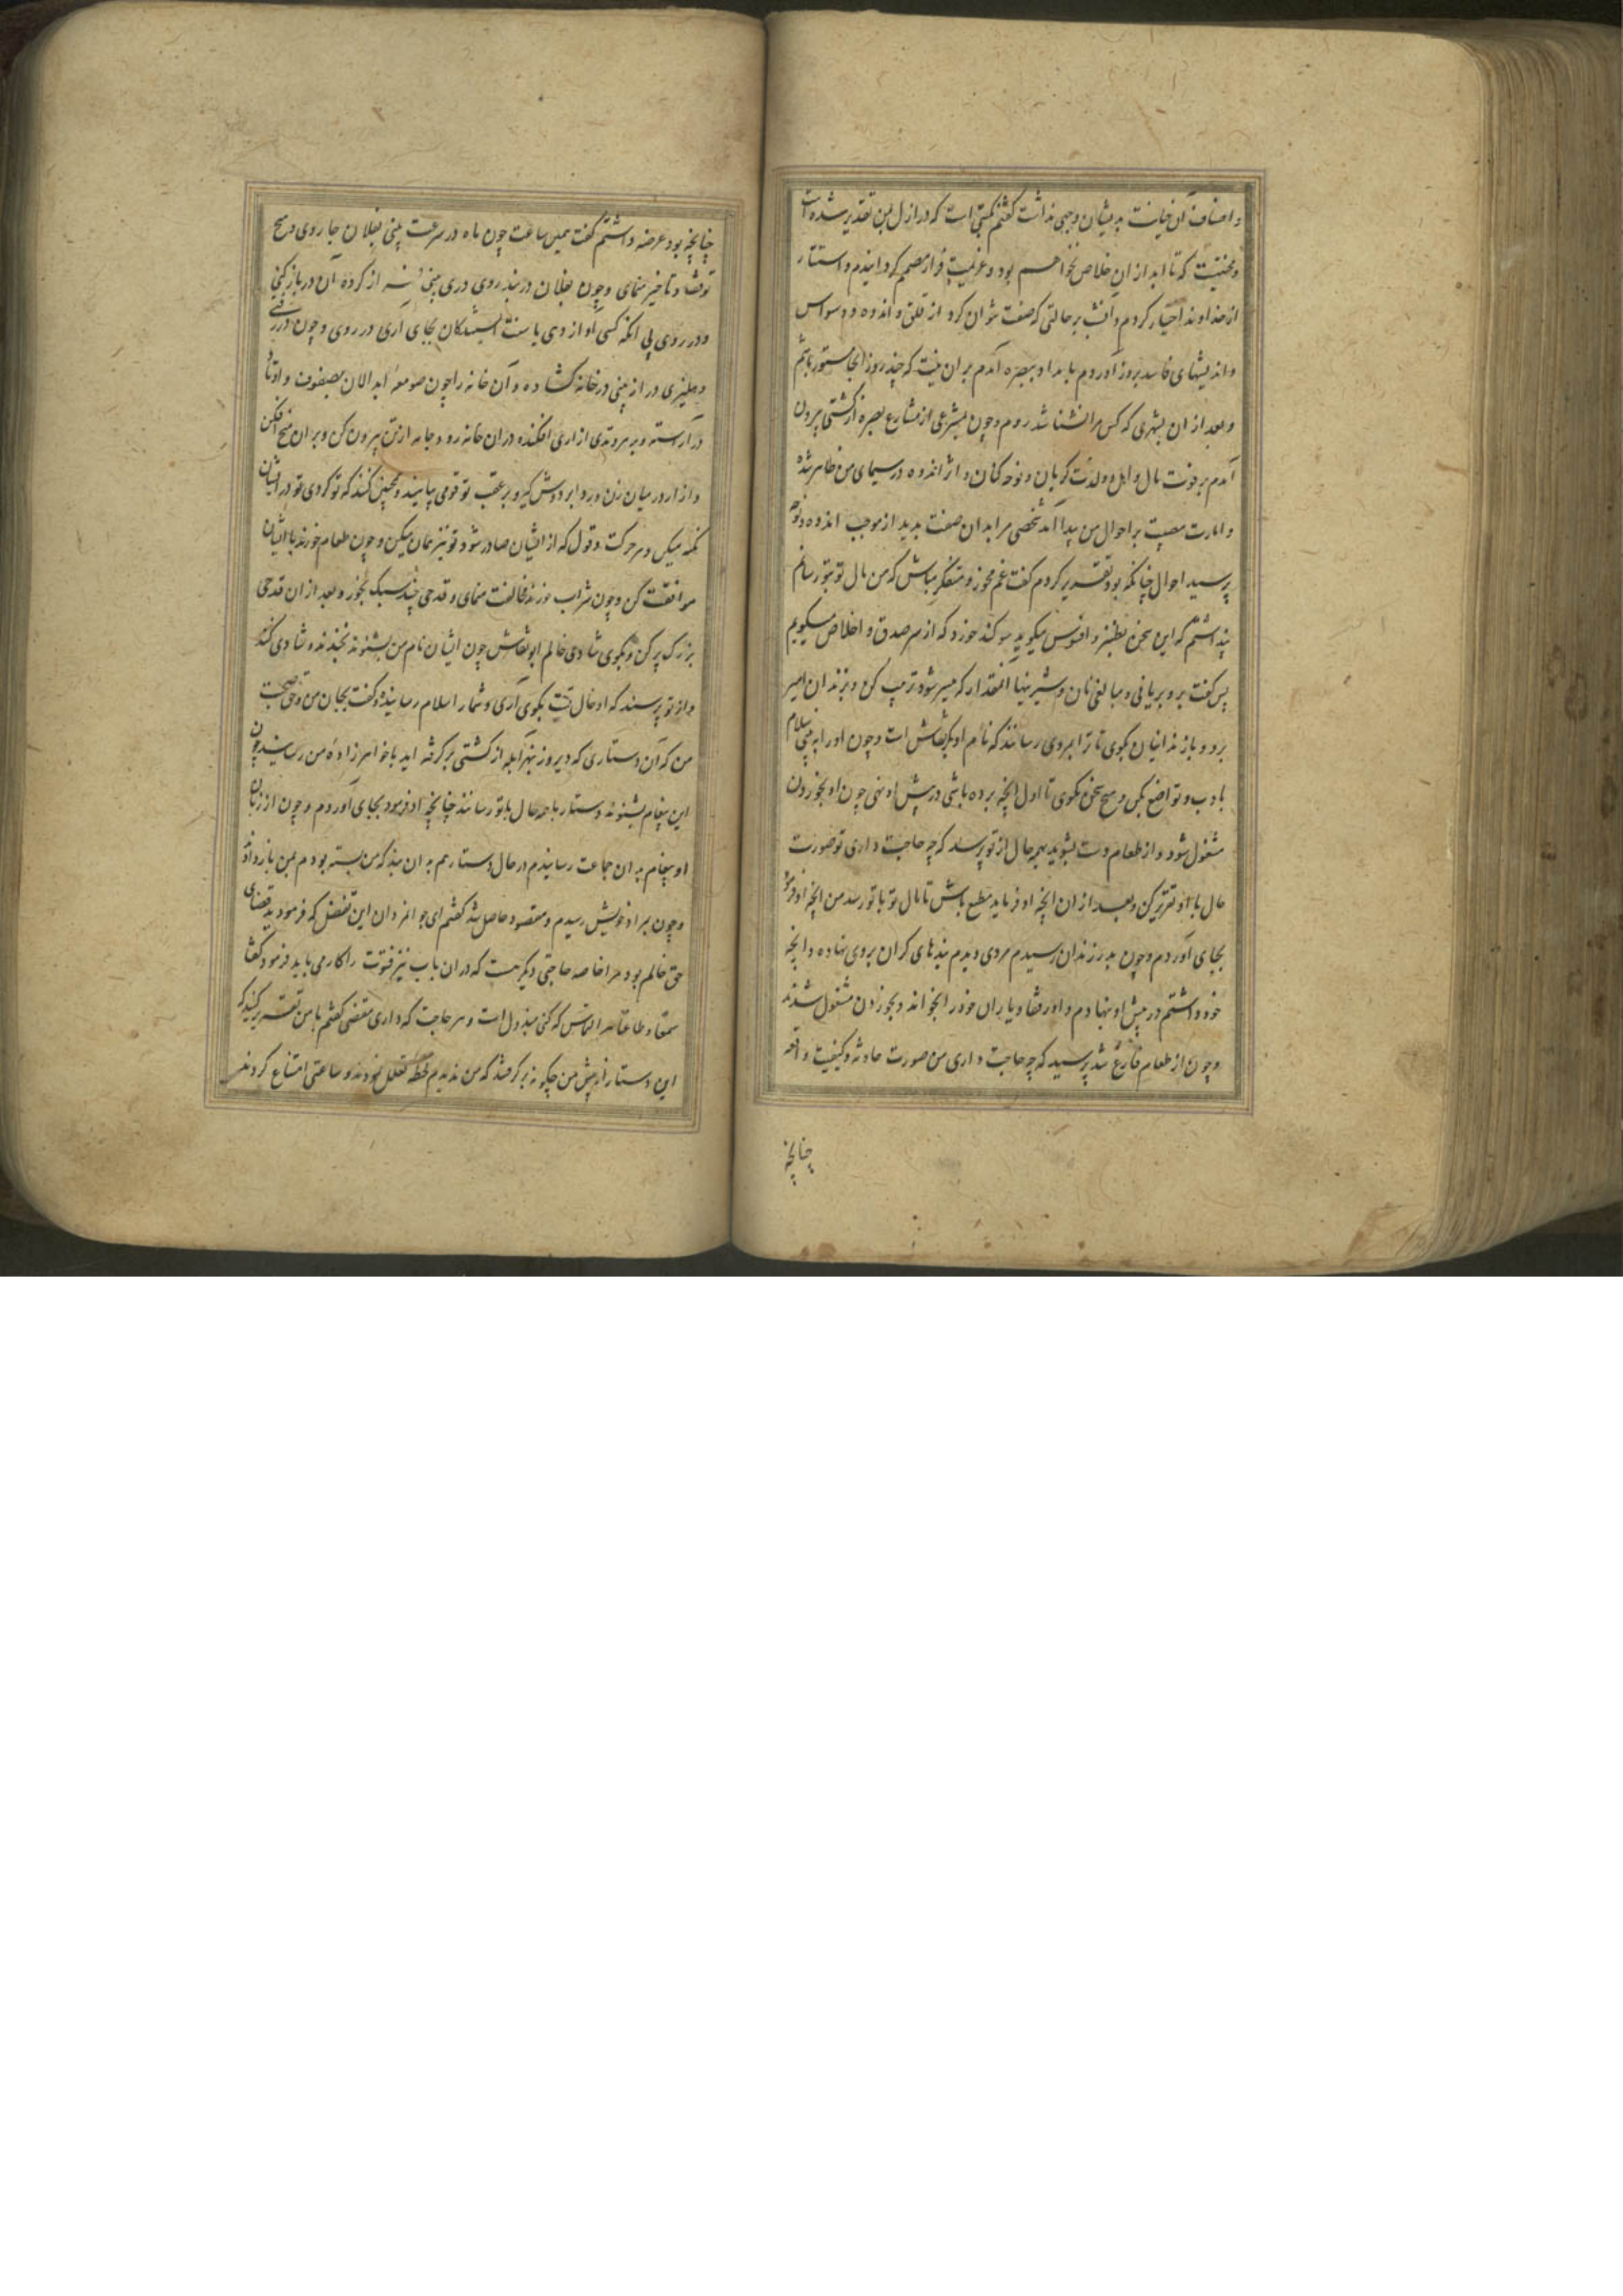 و اضعاف آن خیانت بدیشان وجهی نداشت گفتم نکبتی است که در ازل بمن تقدیر شده است
و محنتیست که تا ابد از آن خلاص نخواهم بود و عزیمت فرار مصمم کردانیدم و استتار
از خداوند اختیار کردم و آن شب بر حالتی که صفت نتوان کرد از قلق و اندوه و وسواس
و اندیشهای فاسد بروز آوردم بامداد ببصره آمدم بر ان نیت که چند روز انجا مستور باشم
و بعد از ان بشهری که کس مرا نشناسد روم و چون بمشرعی از مشارع بصره از کشتی بیرون
آمدم بر فوت مال و اهل و ولدت کریان و نوحه کنان و اثر اندوه در سیمای من ظاهر شده
و امارت مصیبت بر احوال من پیدا آمد شخصی مرا بدان صفت بدید از موجب اندوه و نوحه
پرسید احوال چنانکه بود تقدیر کردم کفت غم مخور و متفکر مباش که من مال تو بتو رسانم
پنداشتم که این سخن بطنز و افسوس میکوید سوکند خورد که از سر صدق و اخلاص میکویم
پس کفت برو بریانی و مبالغی نان و شیرینیها آنمقدار که میسر شود ترتیب کن و بزندان امیر
برو و با زندانیان بکوی تا ترا بمردی رسانند که نام او ابوبکر نقاش است و چون او را به بینی سلام
بادب و تواضع بکن و هیچ سخن مکوی تا اول انچه برده باشی در پیش او نهی چون او بخوردن
مشغول شود و از طعام دست بشوید بهمه حال از تو پرسد که چه حاجت داری تو صورت
حال با او تقریر کن و بعد از ان انچه او فرماید مطیع باش تا مال تو با تو رسد من انچه او فرمود
بجای آوردم و چون بدر زندان رسیدم مردی دیدم بندهای کران بر وی نهاده و انچه
خود داشتم در پیش او نهادم و او رفقا و یاران خود را بخواند و بخوردن مشغول شدند
و چون از طعام فارغ شد پرسید که چه حاجت داری من صورت حادثه و کیفیت واقعه
چنانچه
چنانچه بود عرضه داشتم کفت همین ساعت چون ماه در سرعت بنی بفلان جا روی و هیچ
توقف و تاخیر ننمای و چون بفلان در بند روی دری بینی از کرده آن در باز کنی
و در روی بی انکه کسی آواز دهی یا سنت بجای آری در روی و چون در رفتی
دهلیزی دراز بینی در خانه کشاده و آن خانه را چون صومعهٔ ابدالان بصفوف و اوتاد
در آراسته و بر هر وتدی ازاری افکنده در ان خانه رو و جامه از تن بیرون کن و بر ان میخ افکن
و ازار در میان زن و ردا بر دوش کیر و بر عقب تو قومی بیایند و همچنین کنند که تو کردی تو در ایشان
نکه میکن و هر حرکت و قول که از ایشان صادر شود تو نیز همان میکن و چون طعام خورند با ایشان
موافقت کن و چون شراب خورند مخالفت منمای و قدحی چند سبک بخور و بعد از ان قدحی
بزرک پر کن و بکوی شادی خالم ابو نقاش چون ایشان نام من بشنوند بخندند و شادی کنند
و از تو پرسند که او خال تست بکوی آری و شما را سلام رسانیده و کفت بجان من و حق صحبت
من که آن دستاری که دیروز بنهر ابله از کشتی برکرفته اید با خواهرزادهٔ من رسانید چون
این پیغام بشنوند دستار با همه حال با تو رسانند چنانچه او فرمود بجای آوردم و چون از زبان
او پیغام به ان جماعت رسانیدم در حال دستار هم به ان بند که من بسته بودم بمن باز دادند
و چون بمراد خویش رسیدم و مقصود حاصل شد کفتم ای جوانمردان این تفضل که فرمودید قضای
حق خالم بود مرا خاصه حاجتی دیکر هست که در ان باب نیز فتوت را کار می باید فرمود کفتند
سمعا و طاعة هر التماس که کنی مبذول است و هر حاجت که داری مقضی کفتم با من تقریر کنید که
این دستار از پیش من چکونه برکرفتند که من ندیدم لحظهٔ تعلل نمودند و ساعتی امتناع کردند